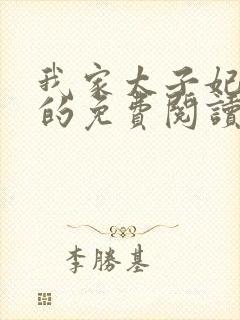 我家太子妃
的免費閱讀
李勝基